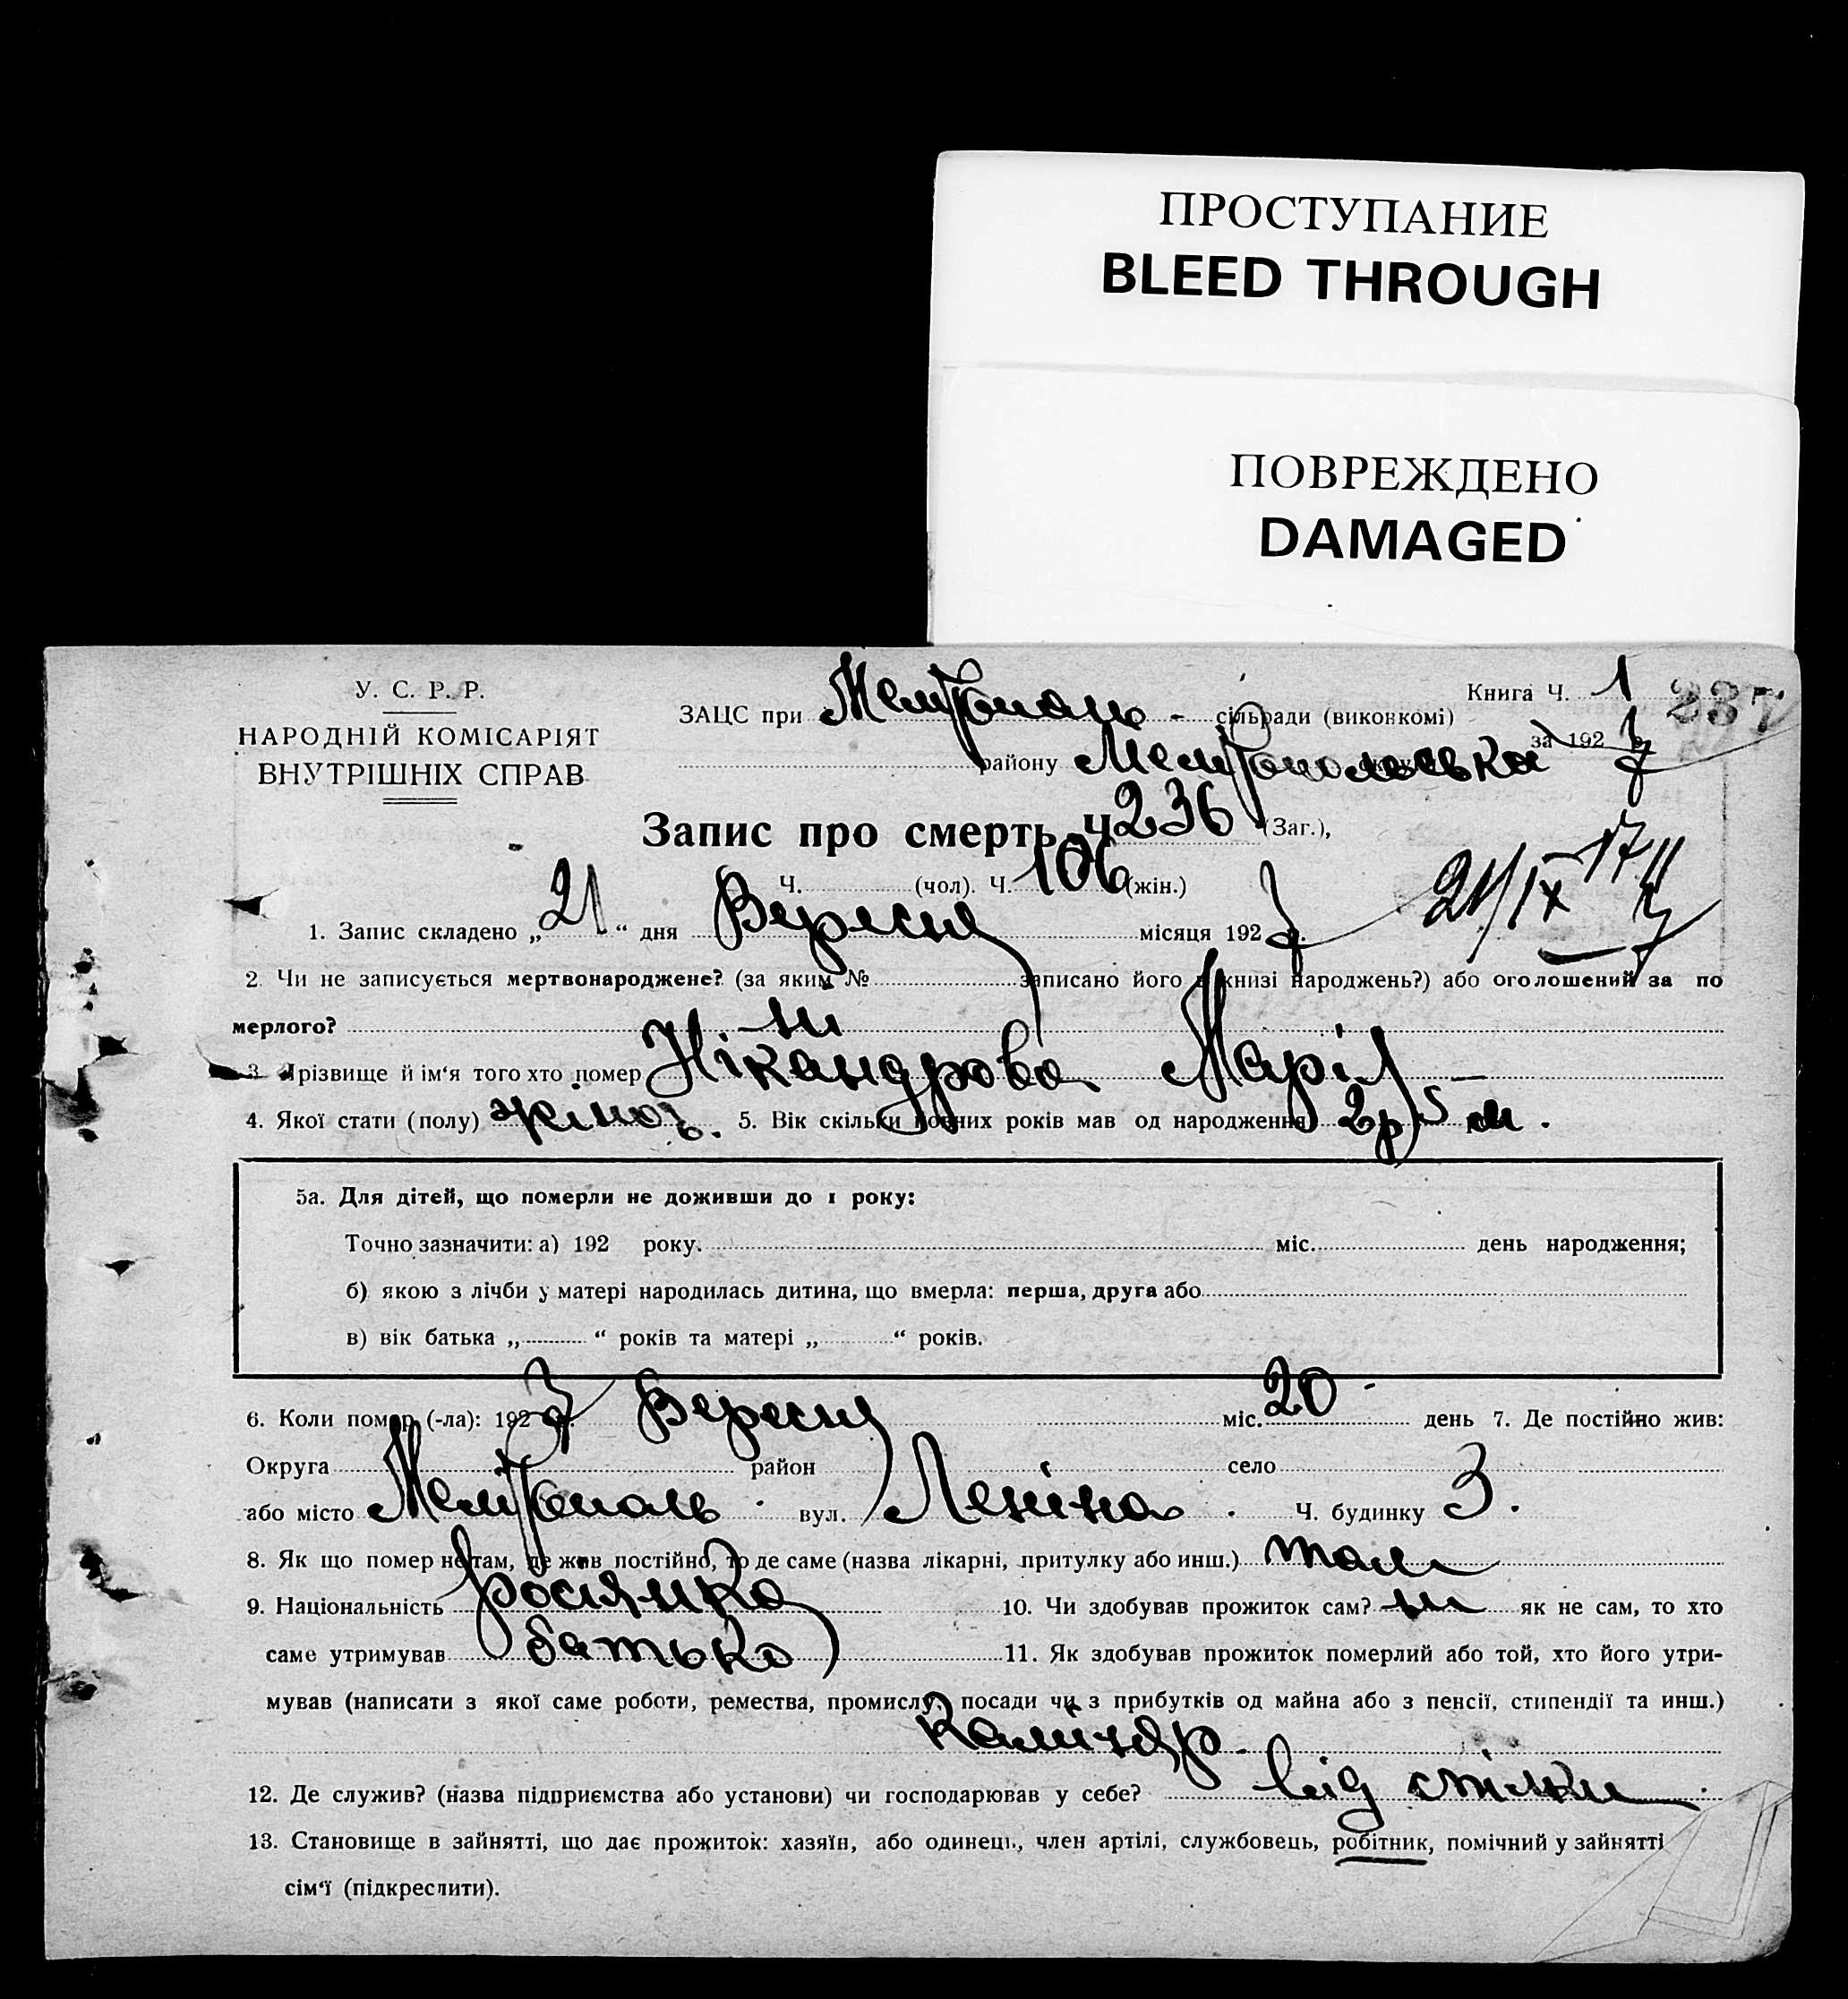 ПРОСТУПАНИЕ
BLEED THROUGH
ПОВРЕЖДЕНО
DAMAGED
У. С. Р. Р.
НАРОДНІЙ КОМІСАРІЯТ
ВНУТРІШНІХ СПРАВ
Книга Ч. 1
237
ЗАЦС при Мелітополь - сільради (виконкомі)
за 1927 р.
району Мелітопольська округи
Запис про смерть Ч. 236 (Заг.),
Ч. (чол). Ч. 106 (жін.)
21/IX
1. Запис складено „21“ дня Вересня місяця 1927 р.
2. Чи не записується мертвонароджене? (за яким № записано його в книзі народжень?) або оголошений за по
мерлого? ні
3. Прізвище й ім‘я того хто помер Нікандрова Марія
4. Якої стати (полу) жіноч. 5. Вік скільки повних років мав од народження 2р 5 м.
5а. Для дітей, що померли не доживши до 1 року:
Точно зазначити: а) 192 року. міс. день народження;
б) якою з лічби у матері народилась дитина, що вмерла: перша, друга або
в) вік батька „ “ років та матері „ “ років.
6. Коли помер (-ла): 1927 р. Вересня міс. 20 день 7. Де постійно жив:
Округа район село
або місто Мелітополь вул. Леніна Ч. будинку 3.
8. Як що помер не там, де жив постійно, то де саме (назва лікарні, притулку або инш.) там
9. Національність росіянка 10. Чи здобував прожиток сам? ні як не сам, то хто
саме утримував батько 11. Як здобував прожиток померлий або той, хто його утри-
мував (написати з якої саме роботи, ремества, промислу, посади чи з прибутків од майна або з пенсії, стипендії та инш.)
12. Де служив? (назва підприємства або установи) чи господарював у себе? від спілки
13. Становище в зайнятті, що дає прожиток: хазяїн, або одинець, член артілі, службовець, робітник, помічний у зайнятті
сім‘ї (підкреслити).